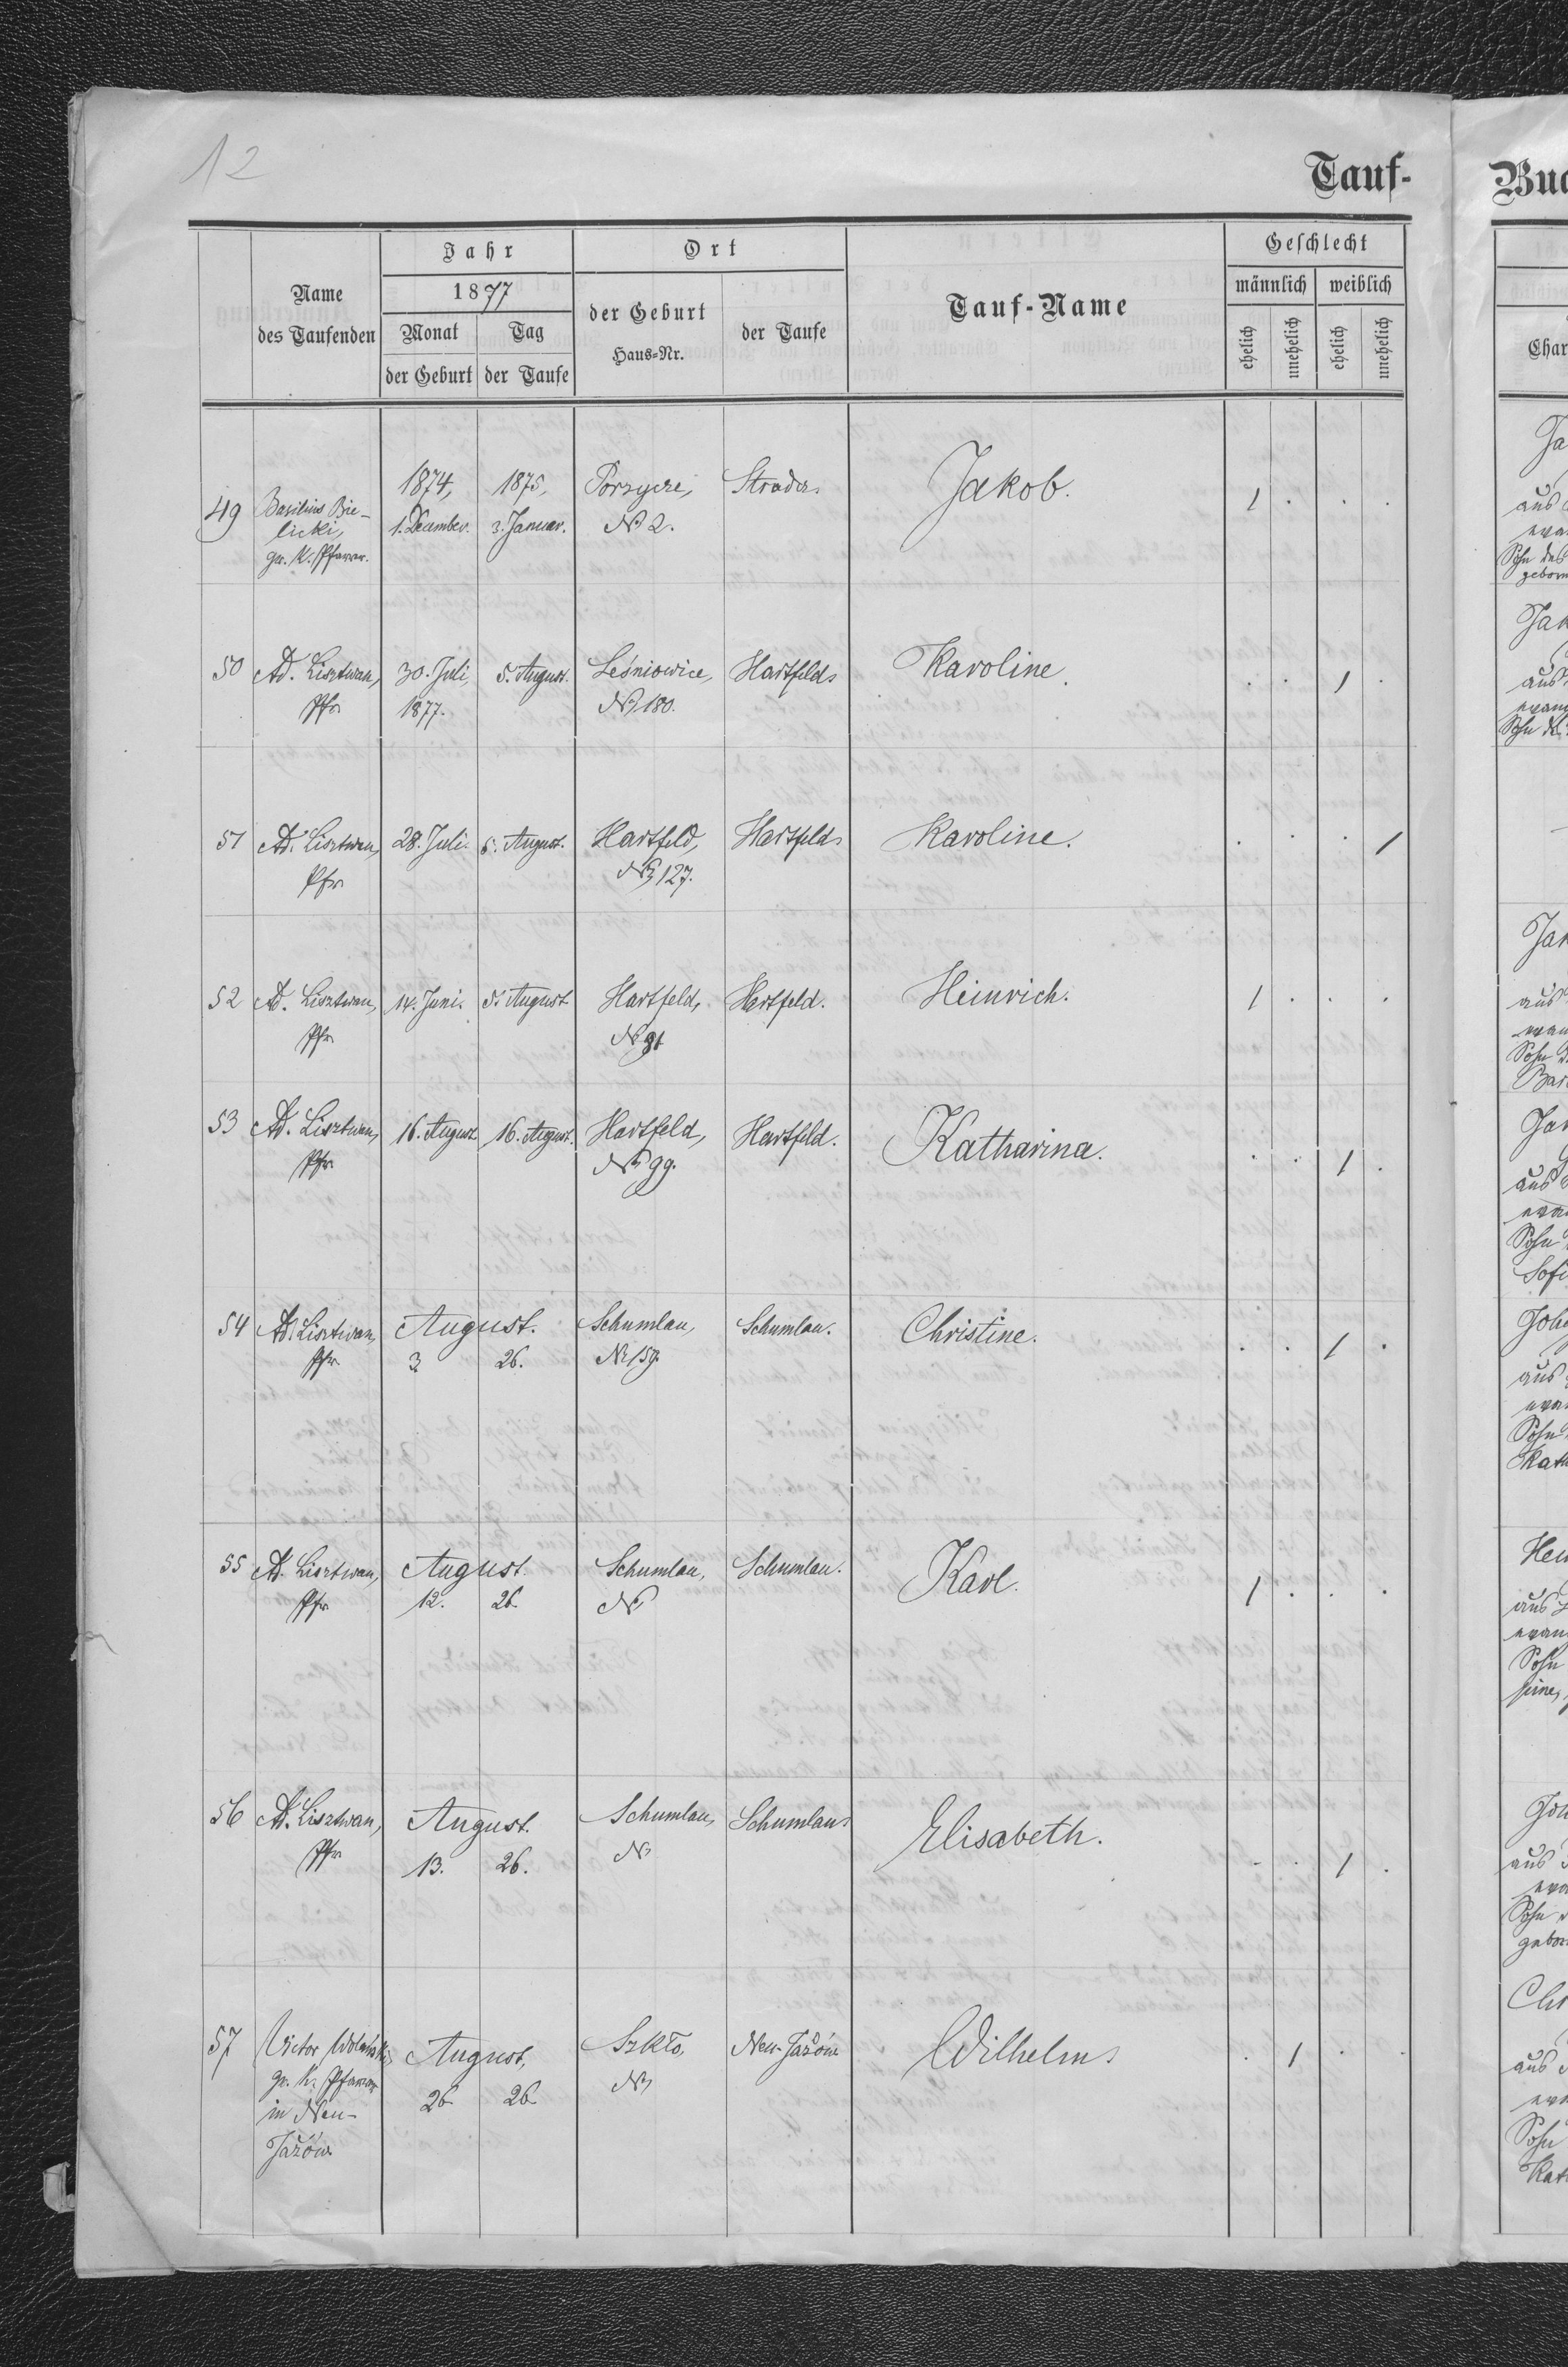 12
Tauf-
Name
des Taufenden
Jahr
1877
Monat
der Geburt
Tag
der Taufe
Ort
der Geburt
Haus-Nr.
der Taufe
Tauf-Name
Geschlecht
männlich
weiblich
ehelich
unehelich
ehelich
unehelich
49
Basilius Bie-
licki,
gr. k. Pfarrer.
1874,
1. December.
1875,
3. Januar.
№ 2.
Jakob.
1 . . .
50
Ad. Lisztwan,
Pfr
30. Juli,
1877.
5. August.
Leśniowice,
№ 180.
Hartfeld
Karoline.
. . 1 .
51
Ad. Lisztwan,
Pfr
28. Juli.
5. August.
Hartfeld,
№ 127.
Hartfeld
Karoline.
. . . 1
52
Ad. Lisztwan,
Pfr
14. Juni.
5. August
Hartfeld,
№ 91
Hartfeld.
Heinrich.
1 . . .
53
Ad. Lisztwan,
Pfr
16. August
16. August.
Hartfeld,
№ 99.
Hartfeld.
Katharina.
. . 1 .
54
Ad. Lisztwan,
Pfr
August.
3
26.
Schumlau,
Schumlau.
Christine.
. . 1 .
55
Ad. Lisztwan,
Pfr
August.
12.
26.
Schumlau,
№
Schumlau.
Karl.
1 . . .
56
Ad. Lisztwan,
Pfr
August.
13.
26.
Schumlau,
№
Schumlau
Elisabeth.
. . 1 .
57
Victor
gr. k. Pfarrer
in Neu-
Jażów
August,
26
26
Szkło,
№
Neu-Jażów
Wilhelm
. 1 . .